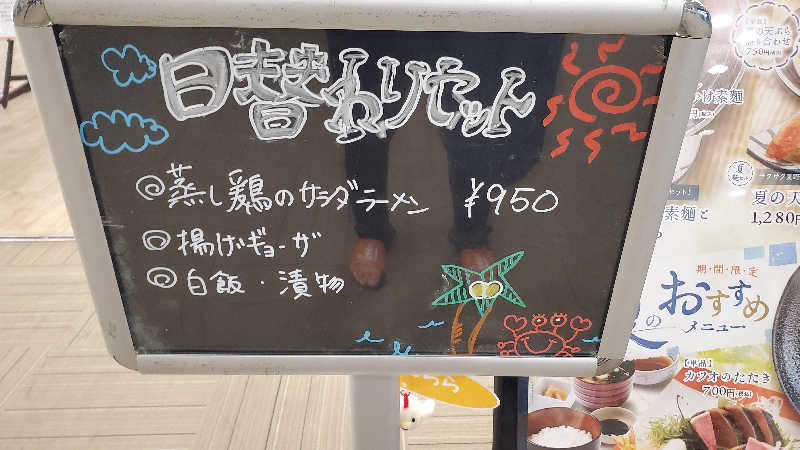 日替わりセット
◎蒸し鶏のサラダラーメン ¥950
◎揚げギョーザ
◎白飯・漬物
【単品】
夏の天ぷら
750円
け素麺
夏の天
1,280
素麺と
期・間・限・定
おすすめ
の
メニュー
【単品】
カツオのたたき
700円(税込)